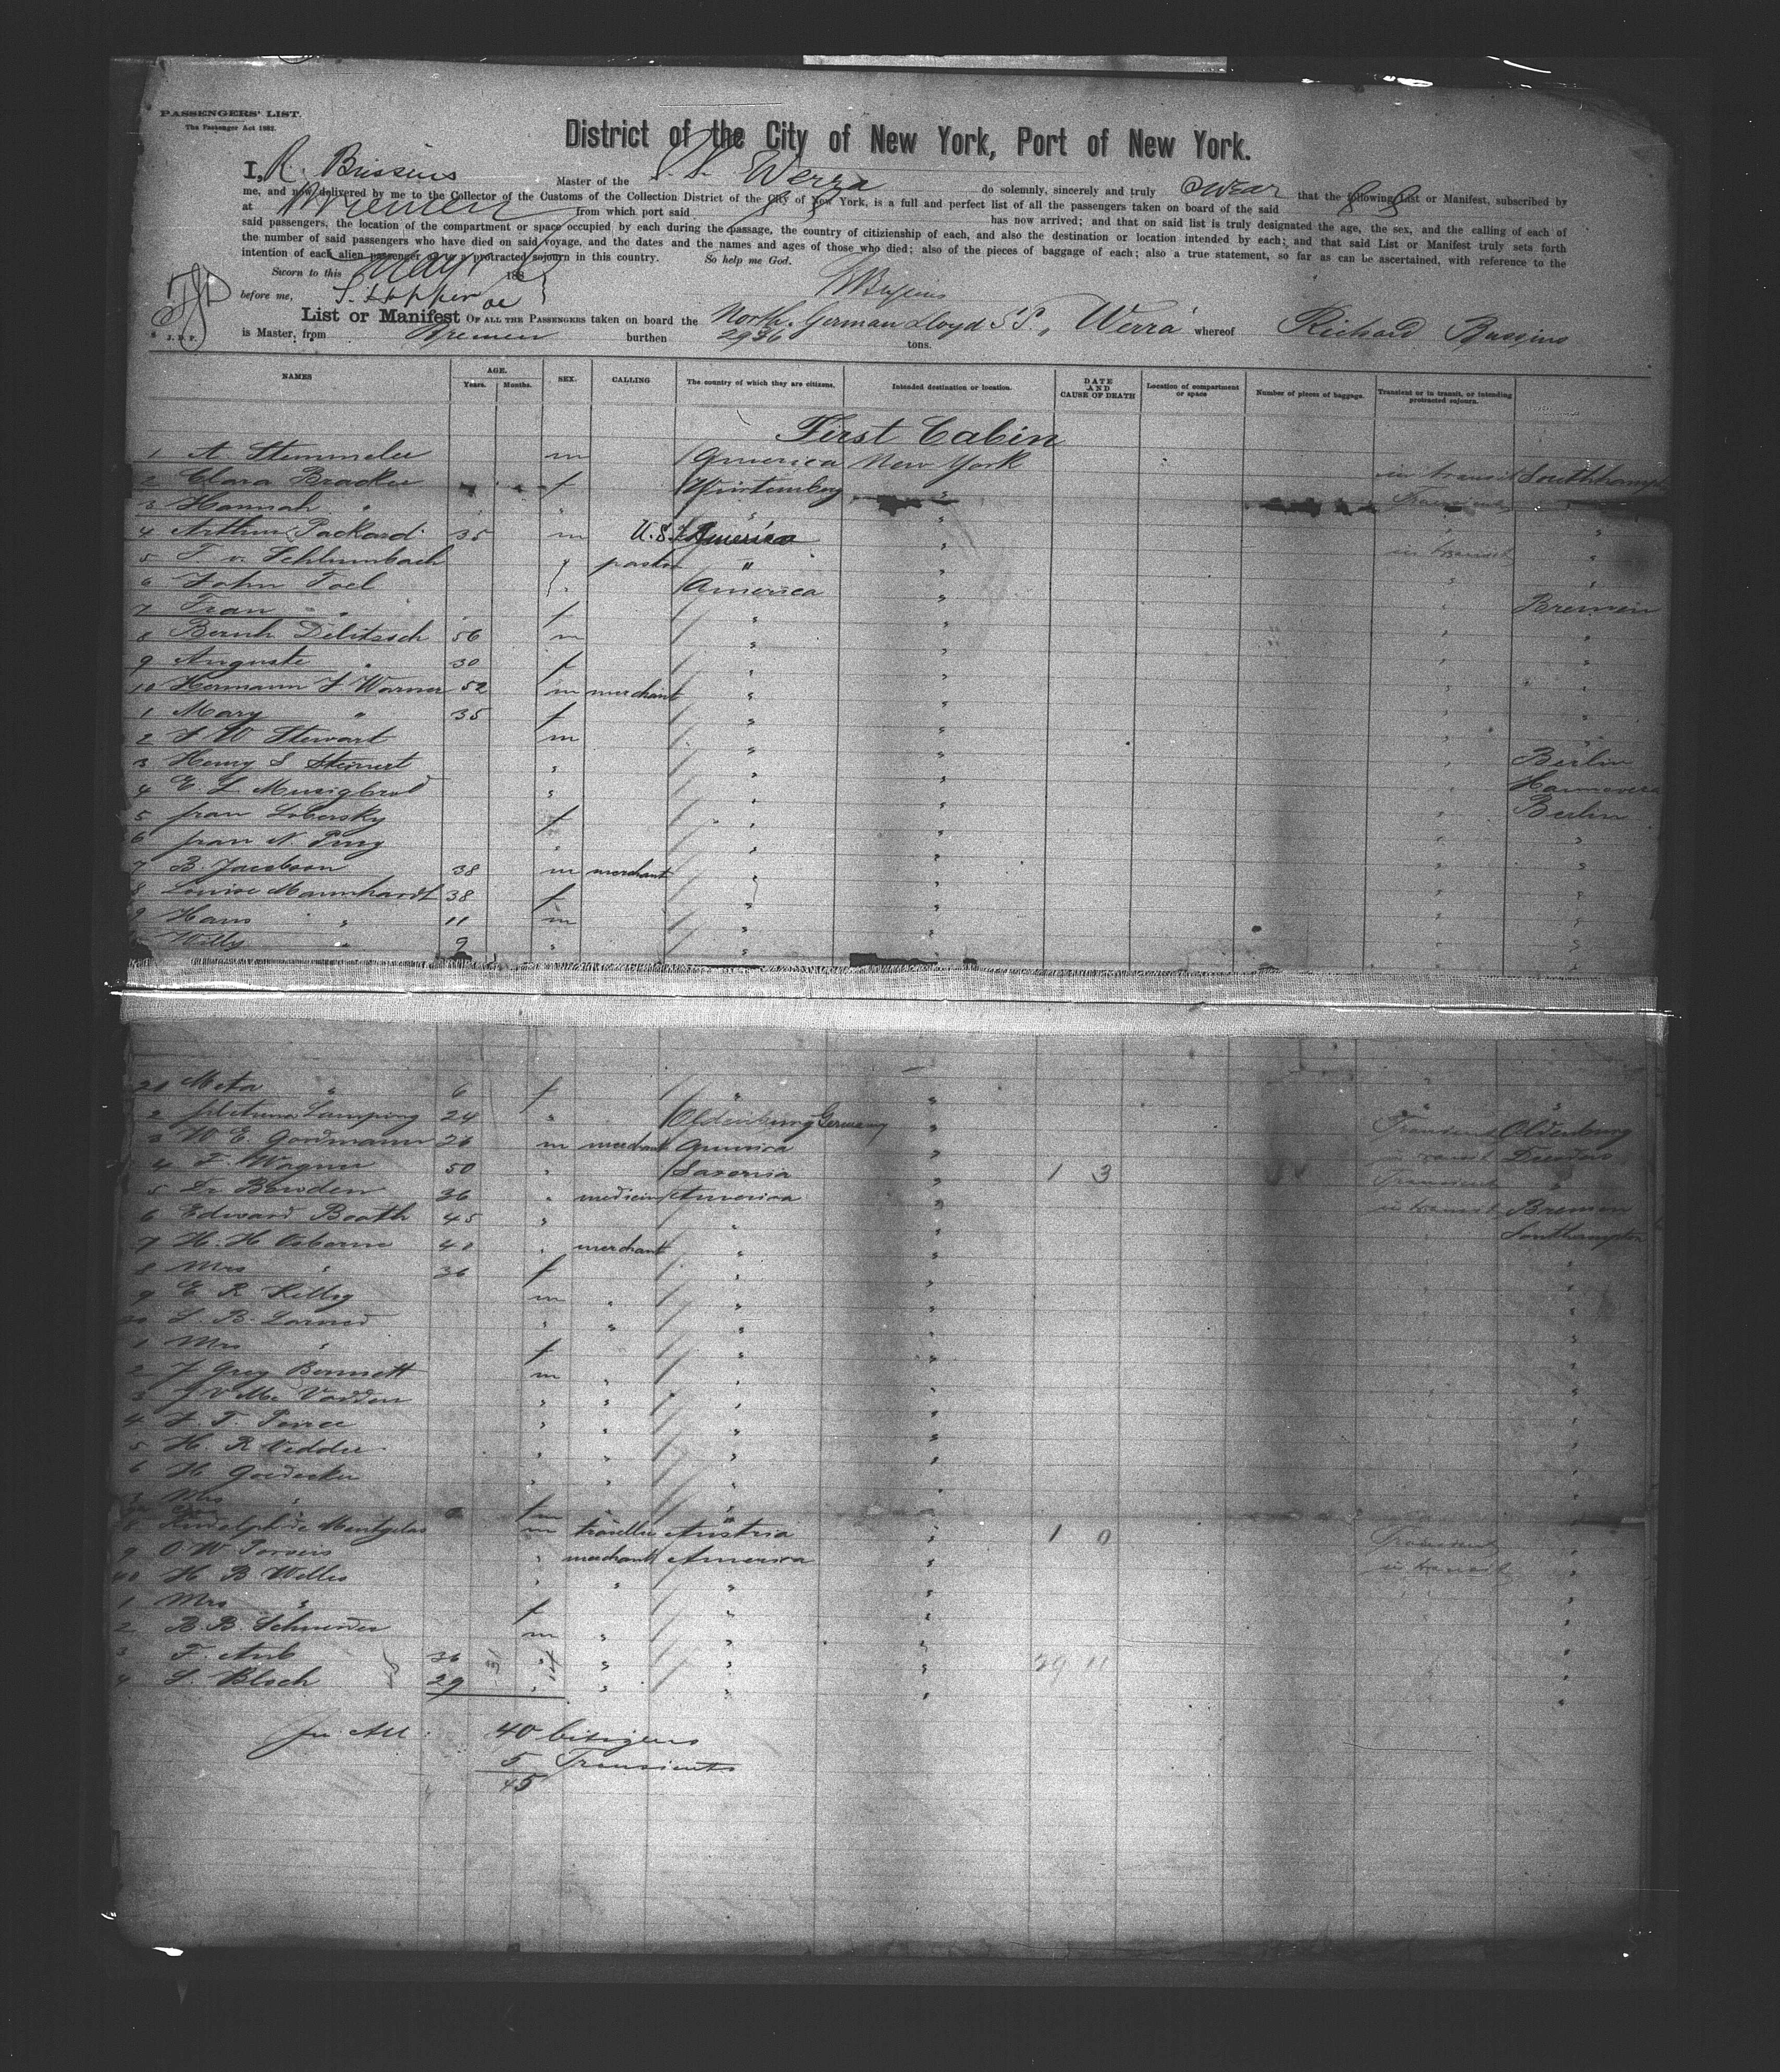 PASSENGERS' LIST.
The Passenger Act 1882.
District of the City of New York, Port of New York.
I, R. Bussius Master of the S.S. Werra do solemnly, sincerely and truly swear that the following List or Manifest, subscribed by
me, and now delivered by me to the Collector of the Customs of the Collection District of the City of New York, is a full and perfect list of all the passengers taken on board of the said
at Bremen from which port said has now arrived; and that on said list is truly designated the age, the sex, and the calling of each of
said passengers, the location of the compartment or space occupied by each during the passage, the country of citizienship of each, and also the destination or location intended by each; and that said List or Manifest truly sets forth
the number of said passengers who have died on said voyage, and the dates and the names and ages of those who died; also of the pieces of baggage of each; also a true statement, so far as can be ascertained, with reference to the
intention of each alien passenger as to a protracted sojourn in this country. So help me God.
Sworn to this May 188
before me,
List or Manifest OF ALL THE PASSENGERS taken on board the North. German Lloyd S.S. "Werra" whereof Richard Bussius
is Master, from Bremen burthen 2936 tons.
J. D. P.
NAMES AGE. Years. Months. SEX. CALLING The country of which they are citizens. Intended destination or location. DATE AND CAUSE OF DEATH Location of compartment or space Number of pieces of baggage. Transient or in transit, or intending protracted sojourn.
First Cabin
1 A Stemmeler m America New York in transit Southhampt
2 Clara Bracker f Würtemberg " Transient "
3 Hannah " " " "
4 Arthur Packard 35 m U.S. America " in transit "
5 F. v. Schlumbach " pastor " " " "
6 John Toel " America " " Bremen
7 Frau " f " " " "
8 Bernh Delitzsch 56 m " " " "
9 Auguste " 30 f " " " "
10 Hermann F Warner 52 m merchant " " " "
1 Mary " 35 f " " " "
2 F W Stewart m " " " Berlin
3 Henry S Steinert " " " " Hannover
4 E. L. " " " " Berlin
5 frau Lobersky f " " " "
6 frau N " " " " "
7 B. Jacobson 38 m merchant " " " "
8 Louise Mannhardt 38 f " " " "
9 Hans " 11 m " " " "
Willy " 9 " " " " "
21 Meta " 6 f " " " "
2 Lamping 24 " Oldenburg Germany " Transient Oldenburg
3 W E. Goodmann 26 m merchant America " in transit Dresden
4 F. Wagner 50 " Saxonia " 1 3 Transient "
5 Dr Bowden 36 " medicin America " in transit Bremen
6 Edward Booth 45 " " " " Southampton
7 H. H Osborne 40 " merchant " " "
8 Mrs " 36 f " " "
9 E R Kelley m " " " "
30 L. B. Larned " " " " "
1 Mrs " f " " "
2 J Grey Bennett m " " " "
3 J V Mc Vadden " " " " "
4 F. T. Peirce " " " "
5 H. R Vedder " " " "
6 H Goedecker " " " "
7 Mrs " f " " "
8 m traveller Austria " 1 0 Transient "
9 O W " merchant America " in transit "
40 H B Welles " " " " "
1 Mrs " f " " "
2 B. B. Schneider m " " " "
3 F. Aub 36 " " " " 39 11 "
4 L. Bloch 29 " " " " "
In All: 40 Citizens
5 Transients
45